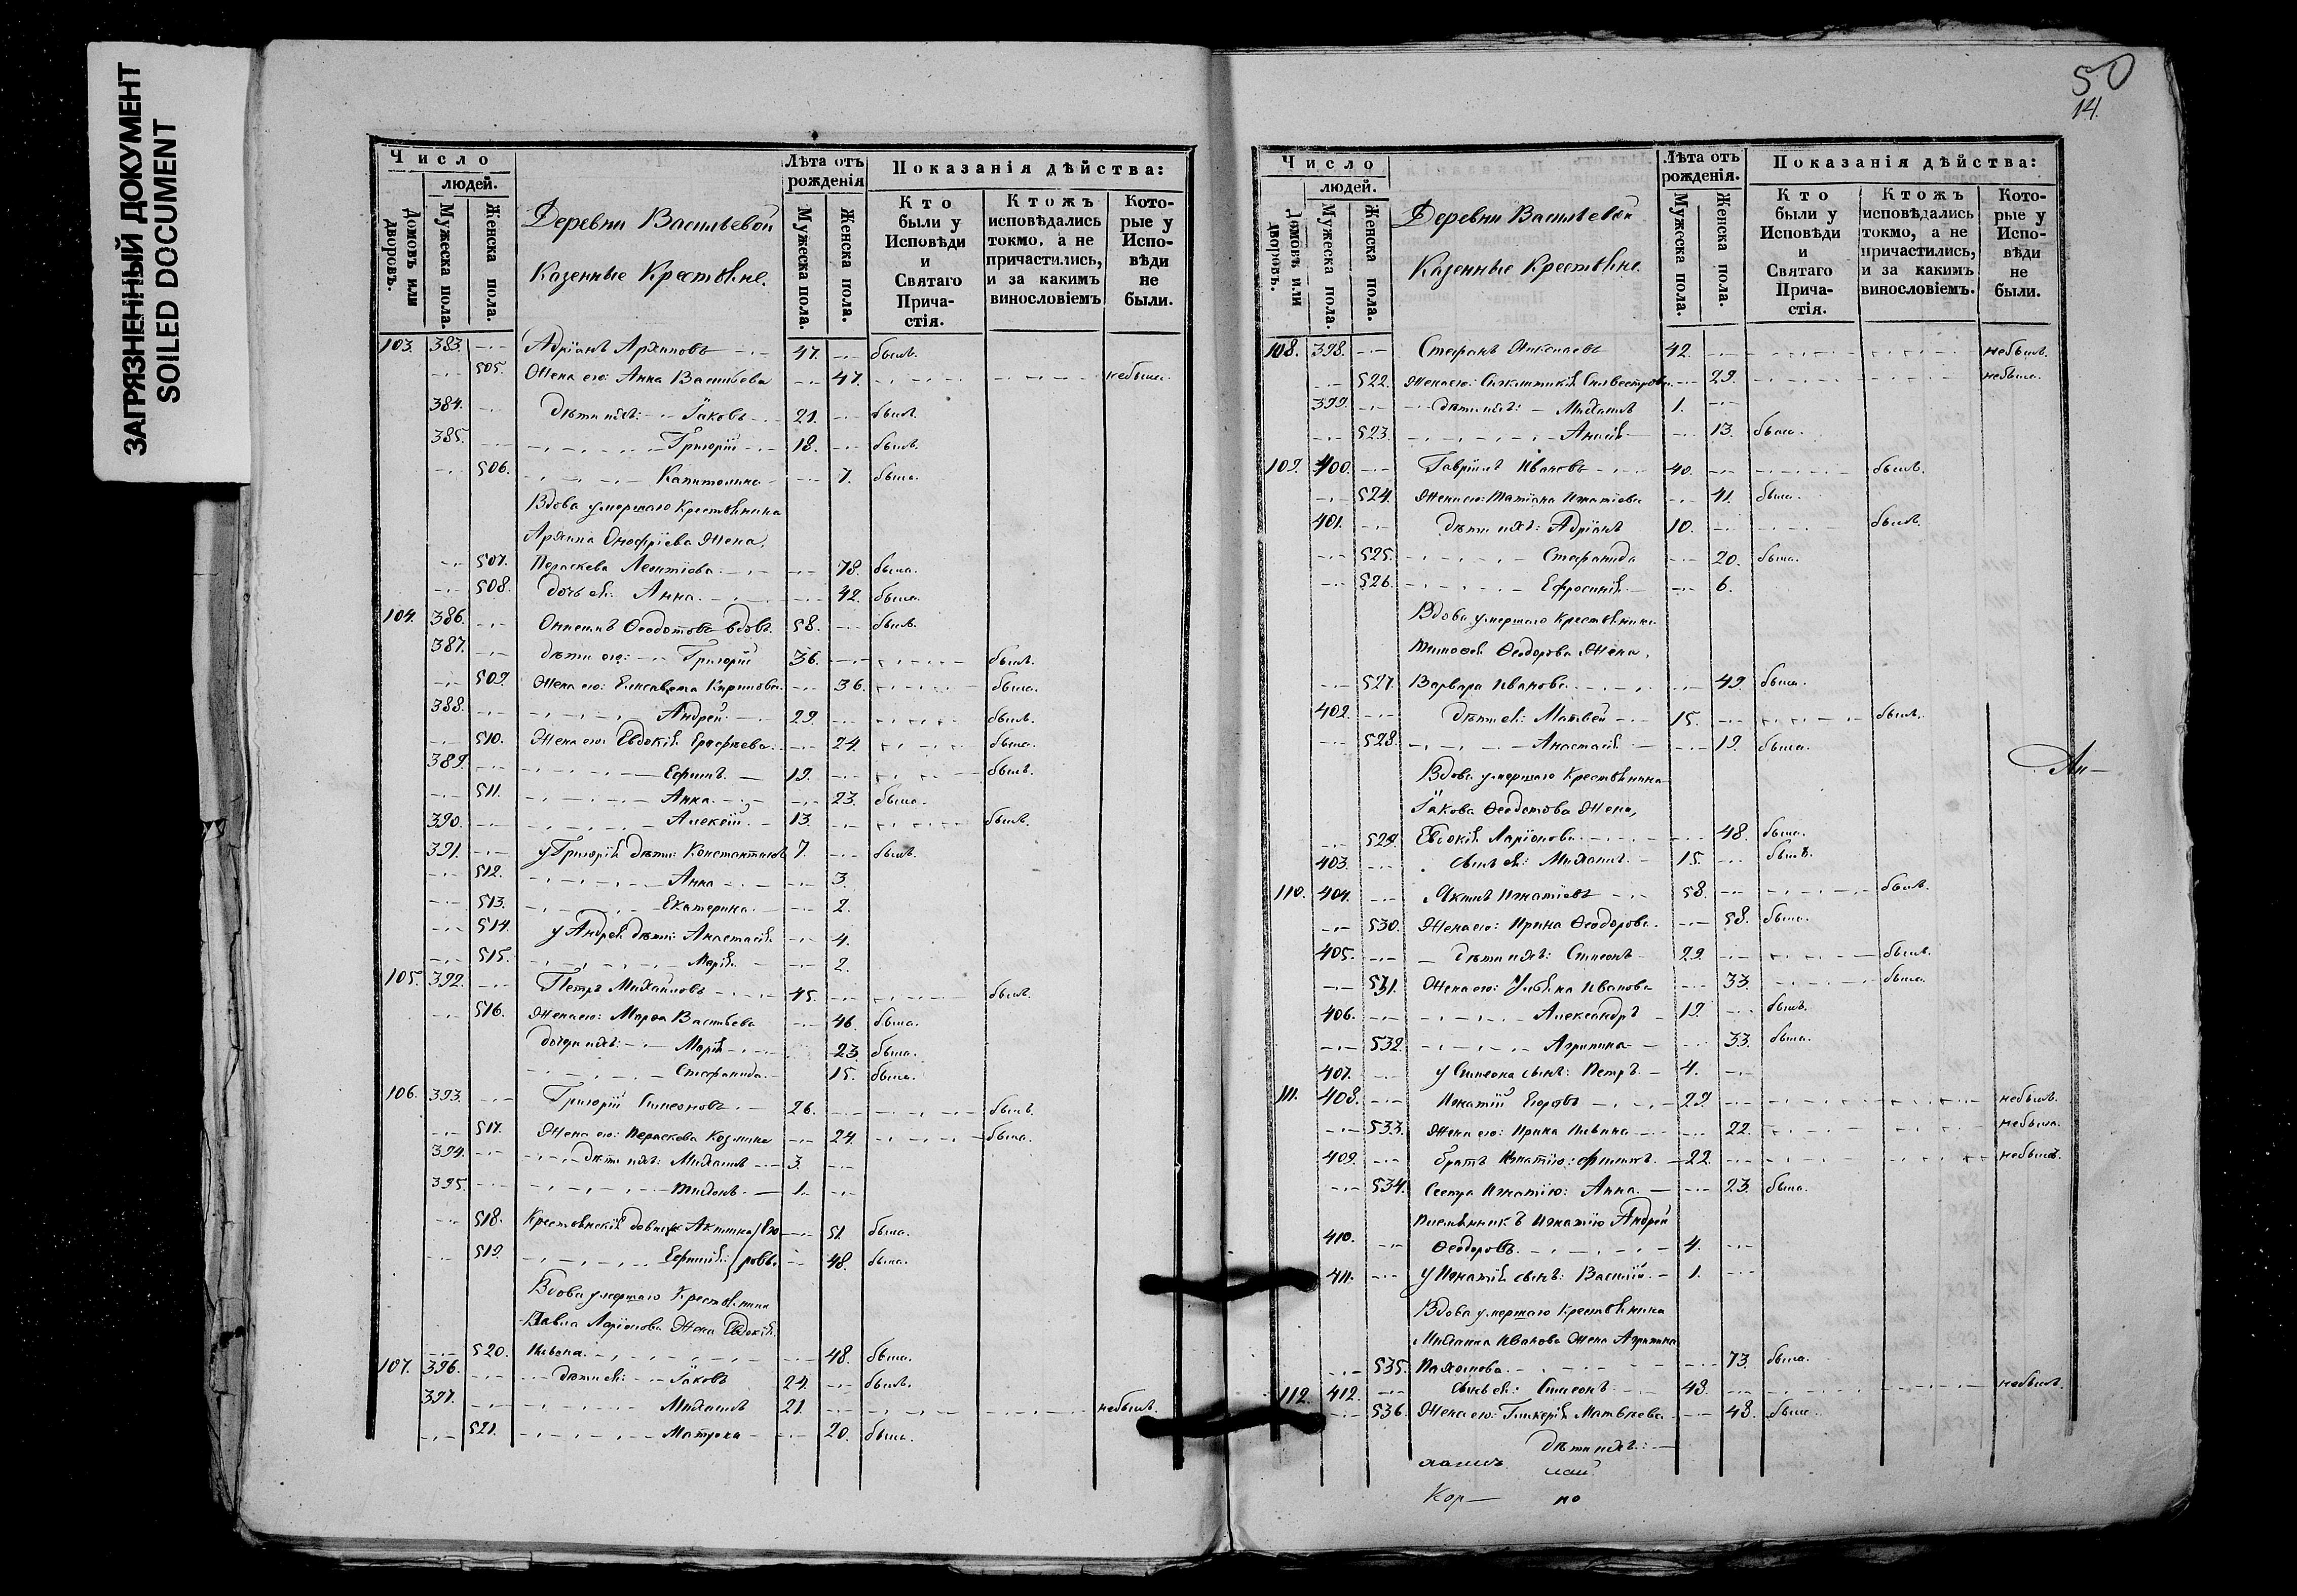 ЗАГРЯЗНЕННЫЙ ДОКУМЕНТ
SOILED DOCUMENT
50
14.
Число
людей.
Домовъ или дворовъ.
Мужеска пола.
Женска пола.
Деревни Васильевой
Казенные Крестьяне.
Лѣта отъ рожденія
Мужеска пола.
Женска пола.
Показанія дѣйства:
Кто были у Исповѣди и Святаго Прича-стія.
Ктожъ исповѣдались токмо, а не причастились, и за какимъ винословіемъ
Кото-рые у Испо-вѣди не были.
103. 383. Адріанъ Архиповъ 47. былъ.
505. Жена его: Анна Васильева 47. небыла.
384. дѣти ихъ: Іаковъ 21. былъ.
385. Григорій 18. былъ.
506. Капитолина 7. была.
Вдова умершаго Крестьянина
Архипа Онофріева Жена,
507. Параскева Леонтіева 78. была.
508. дочь ея: Анна 42. была.
104. 386. Ѳеодотовъ вдовъ 58. былъ.
387. дѣти его: Григорій 36. былъ.
509. Жена его: Елисавета Карпова 36. была.
388. Андрей 29. былъ.
510. Жена его: Евдокія Ерофѣева 24. была.
389. Ефимъ 19. былъ.
511. Анна 23. была.
390. Алексій 13. былъ.
391. у Григорія дѣти: Константинъ 7. былъ.
512. Анна 3.
513. Екатерина 2.
514. у Андрея дѣти: Анастасія 4.
515. Марія 2.
105. 392. Петръ Михайловъ 45. былъ.
516. Жена его: Марѳа Васильева 46. была.
дочери ихъ: Марія 23. была.
Стефанида 15. была.
106. 393. Григорій Симеоновъ 26. былъ.
517. Жена его: Параскева Козмина 24. была.
394. дѣти ихъ: Михаилъ 3.
395. 1.
518. Крестьянскія 51. была.
519. 48. была.
Вдова умершаго Крестьянина
Павла Ларіонова Жена Евдокія
520. 48. была.
107. 396. дѣти ея: Іаковъ 24. былъ.
397. Михаилъ 21. небылъ.
521. Матрона 20. была.
Число
людей.
Домовъ или дворовъ.
Мужеска пола.
Женска пола.
Деревни Васильевой
Казенные Крестьяне.
Лѣта отъ рожденія.
Мужеска пола.
Женска пола.
Показанія дѣйства:
Кто были у Исповѣди и Святаго Прича-стія.
Ктожъ исповѣдались токмо, а не причастились, и за какимъ винословіемъ.
Кото-рые у Испо-вѣди не были.
108. 398. Стефанъ Николаевъ 42. небылъ.
522. Жена его: Синклитикія Сильвестрова 29. небыла.
399. дѣти ихъ: Михаилъ 1.
523. 13. была.
109. 400. Гавріилъ Ивановъ 40. былъ.
524. Жена его: Татіана Игнатіева 41. была.
401. дѣти ихъ: Адріанъ 10. былъ.
525. Стефанида 20. была.
526. Ефросинія 6.
Вдова умершаго Крестьянина
Тимоѳея Ѳеодорова Жена,
527. Варвара Иванова 49. была.
402. дѣти ея: Матвей 15. былъ.
528. Анастасія 19. была.
Вдова умершаго Крестьянина
Іакова Ѳеодотова Жена,
529. Евдокія Ларіонова 48. была.
403. сынъ ея: Михаилъ 15. былъ.
110. 404. Игнатіевъ 58. былъ.
530. Жена его: Ирина Ѳеодорова 58. была.
405. дѣти ихъ: Симеонъ 29. былъ.
531. Жена его: Уліяна Иванова 33. была.
406. Александръ 19. былъ.
532. Агрипина 33. была.
407. у Симеона сынъ: Петръ 4.
111. 408. Игнатій Егоровъ 29. небылъ.
533. Жена его: Ирина 22. небыла.
409. братъ Игнатію: Филипъ 22. небылъ.
534. Сестра Игнатію: Анна 23. была.
Племянникъ Игнатію Андрей
410. Ѳеодоровъ 4.
411. у Игнатія сынъ: Василій 1.
Вдова умершаго Крестьянина
Михаила Иванова Жена Агрипина
535. Пахомова 73. была.
112. 412. сынъ ея: Симеонъ 48. небылъ.
536. Жена его: Гликерія Матвѣева 48. была.
дѣти ихъ:
Ан—
Кор— по